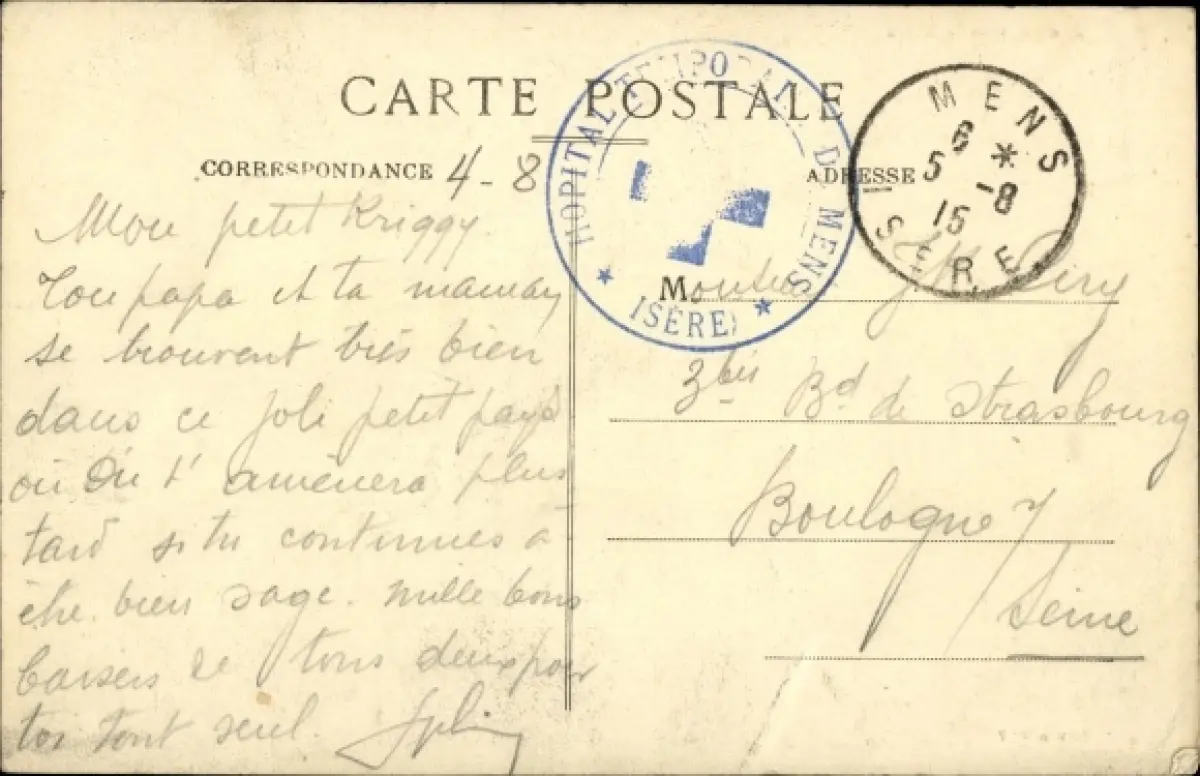 CARTE POSTALE
CORRESPONDANCE 4-8
ADRESSE
HOPITAL TEMPORAI D MENS
★ (ISÈRE) ★
MENS
6 *
5 -8
15
ISERE
Mon petit Kriggy.
Ton papa et ta maman
se trouvent très bien
dans ce joli petit pays
où on t'amènera plus
tard si tu continues à
être bien sage. Mille bons
baisers de tous deux pour
toi tout seul.
M
3bis Bd de Strasbourg
Boulogne s/
Seine